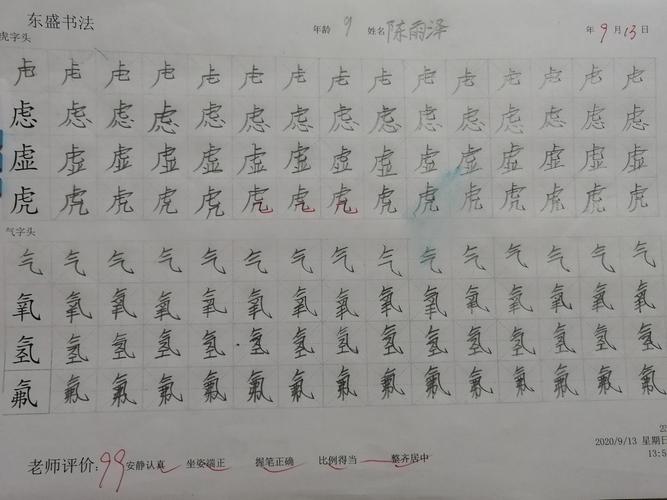 东盛书法 年龄 9 姓名 陈雨泽 年 9 月 13 日
虎字头
虍 虍 虍 虍 虍 虍 虍 虍 虍 虍 虍 虍 虍 虍 虍
虑 虑 虑 虑 虑 虑 虑 虑 虑 虑 虑 虑 虑 虑 虑
虚 虚 虚 虚 虚 虚 虚 虚 虚 虚 虚 虚 虚 虚 虚
虎 虎 虎 虎 虎 虎 虎 虎 虎 虎 虎 虎 虎 虎 虎
气字头
气 气 气 气 气 气 气 气 气 气 气 气 气 气 气
氧 氧 氧 氧 氧 氧 氧 氧 氧 氧 氧 氧 氧 氧 氧
氢 氢 氢 氢 氢 氢 氢 氢 氢 氢 氢 氢 氢 氢 氢
氟 氟 氟 氟 氟 氟 氟 氟 氟 氟 氟 氟 氟 氟 氟
2020/9/13 星期日
老师评价: 99 安静认真 坐姿端正 握笔正确 比例得当 整齐居中